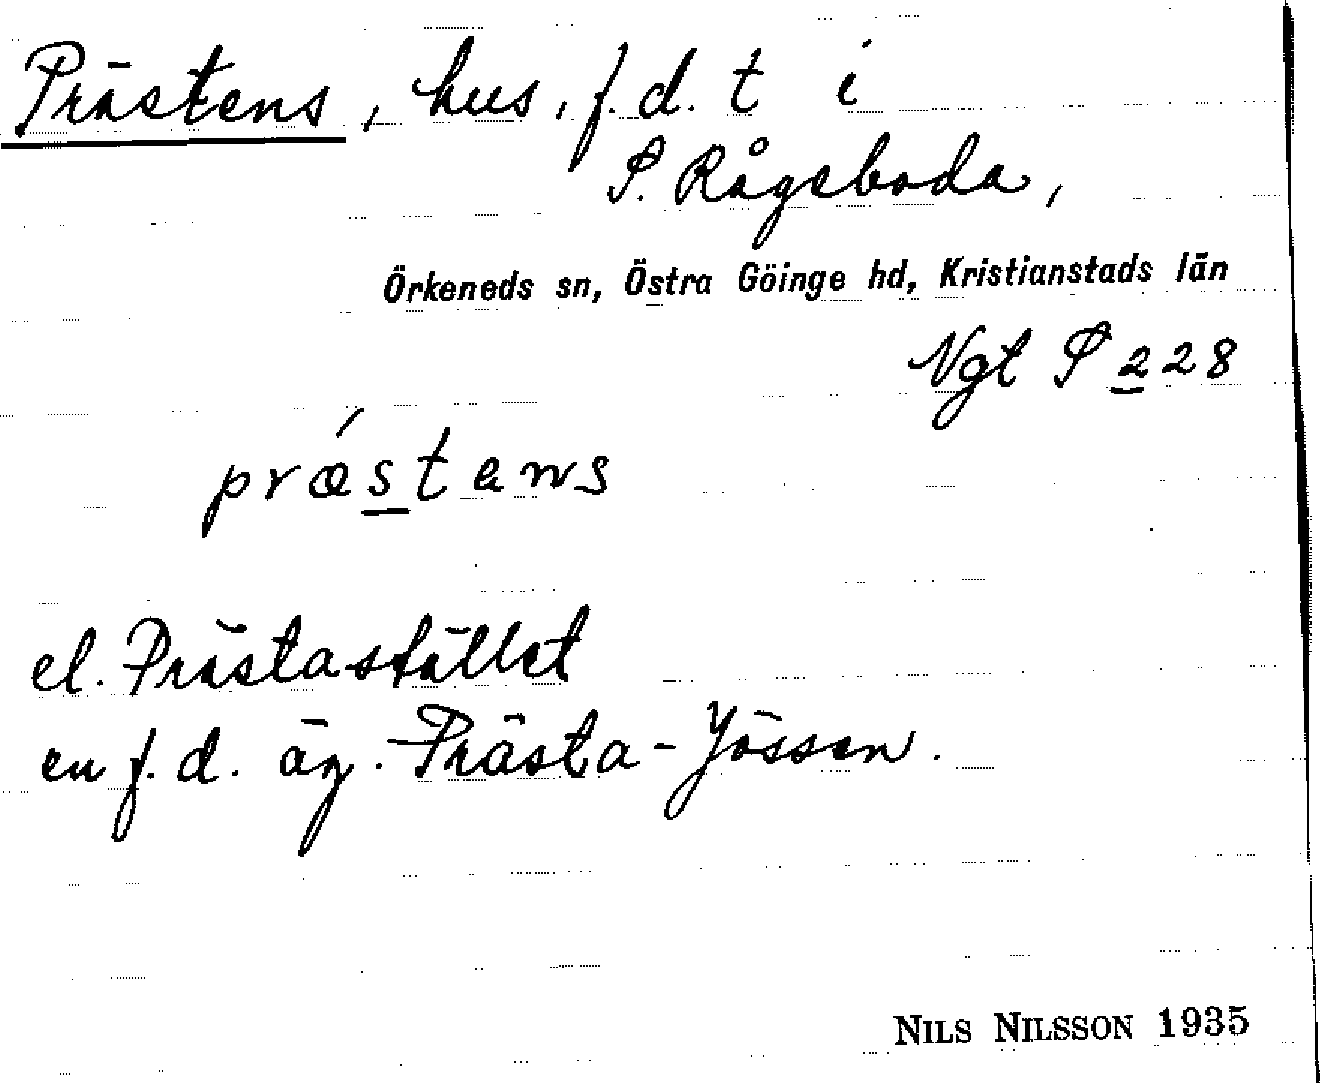 Prästens, hus, f.d. t i
S. Rågeboda,
Örkeneds sn, Östra Göinge hd, Kristianstads län
Ngt S 228
prǽstens
el. Prästastället
en f.d. äg. Prästa-Jössen.
NILS NILSSON 1935